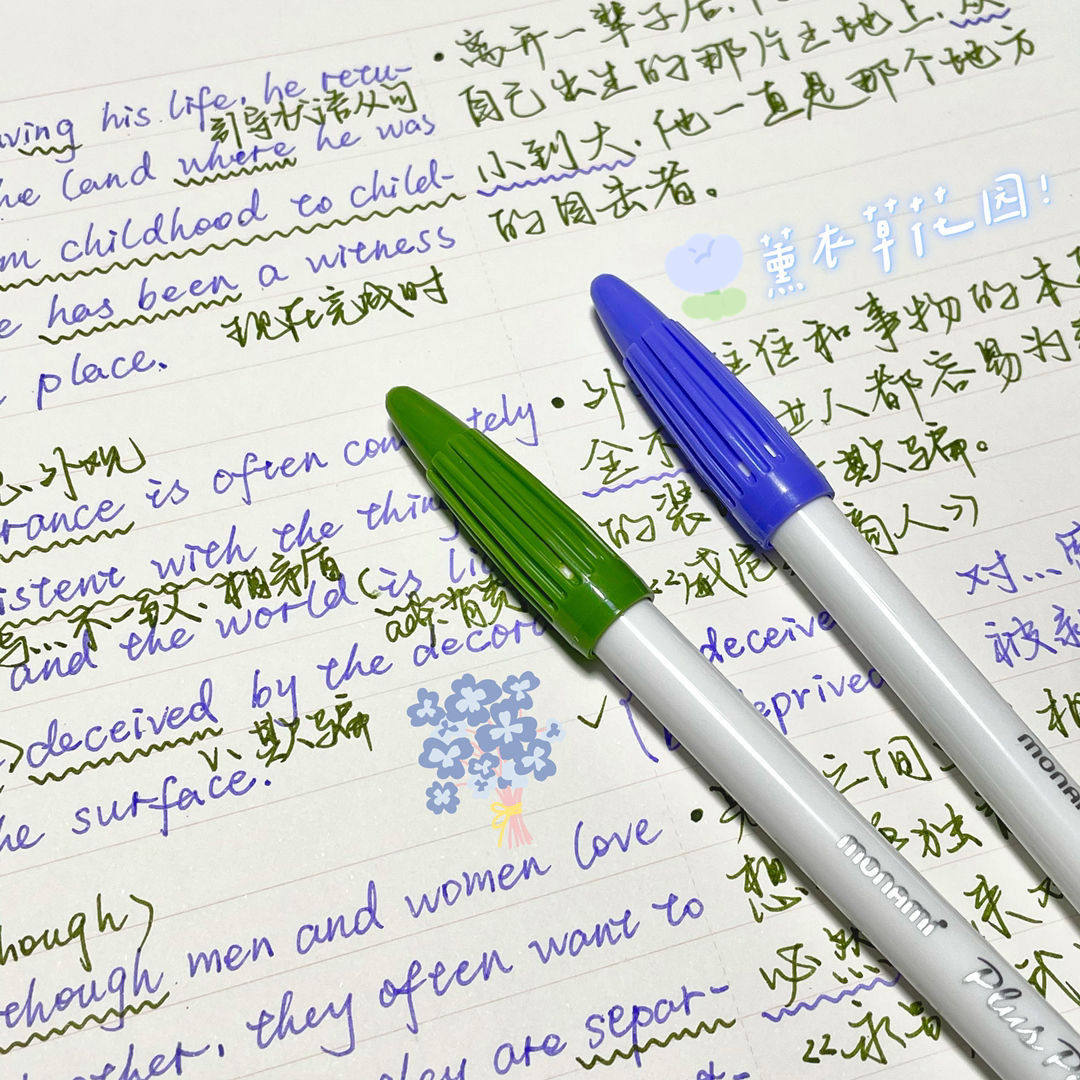 ving his life, he retu-
引导状语从句
he land where he was
m childhood to child-
e has been a witness
现在完成时
place.
外观
rance is often com tely
istent with the thing
不一致、相矛盾
and the world is li
adj.
deceived by the decora
v. 欺骗
he surface.
hough)
though men and women love
other, they often want to
hey are separ-
·离开一辈子后,
自己出生的那片土地上,从
小到大,他一直是那个地方
的目击者。
薰衣草花园!
·外 往往和事物的本
全不 世人都容易为
的装 欺骗。
商人》
对...
deceive
eprived
被
之间
想 独
必然 来
永
monami
Plus P
mona